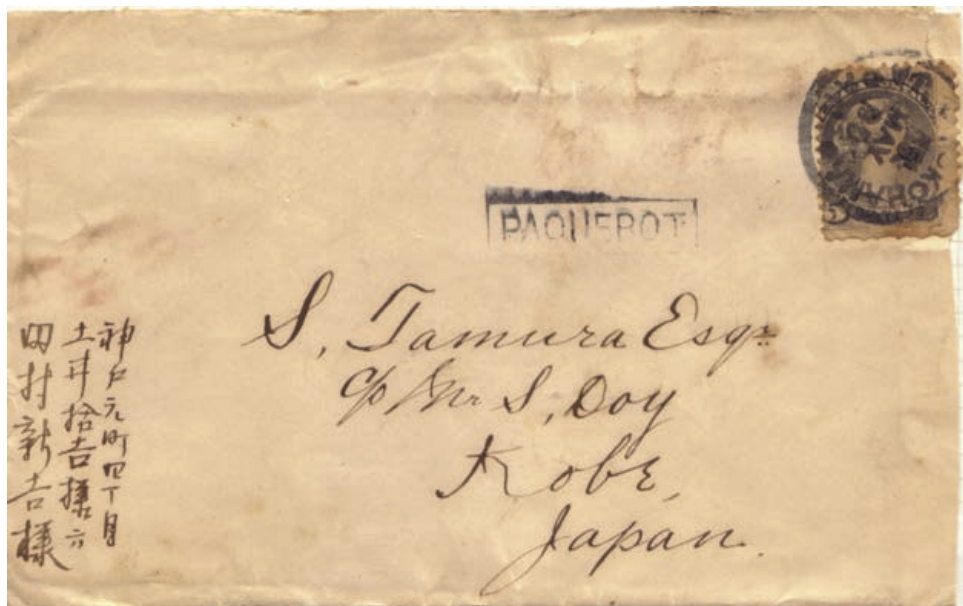 PAQUEBOT
YOKOHAMA
MAY
5
S. Tamura Esqr.
c/o Mr S. Doy
Kobe,
Japan.
神戸元町四丁目
土井拾吉様方
田村新吉様